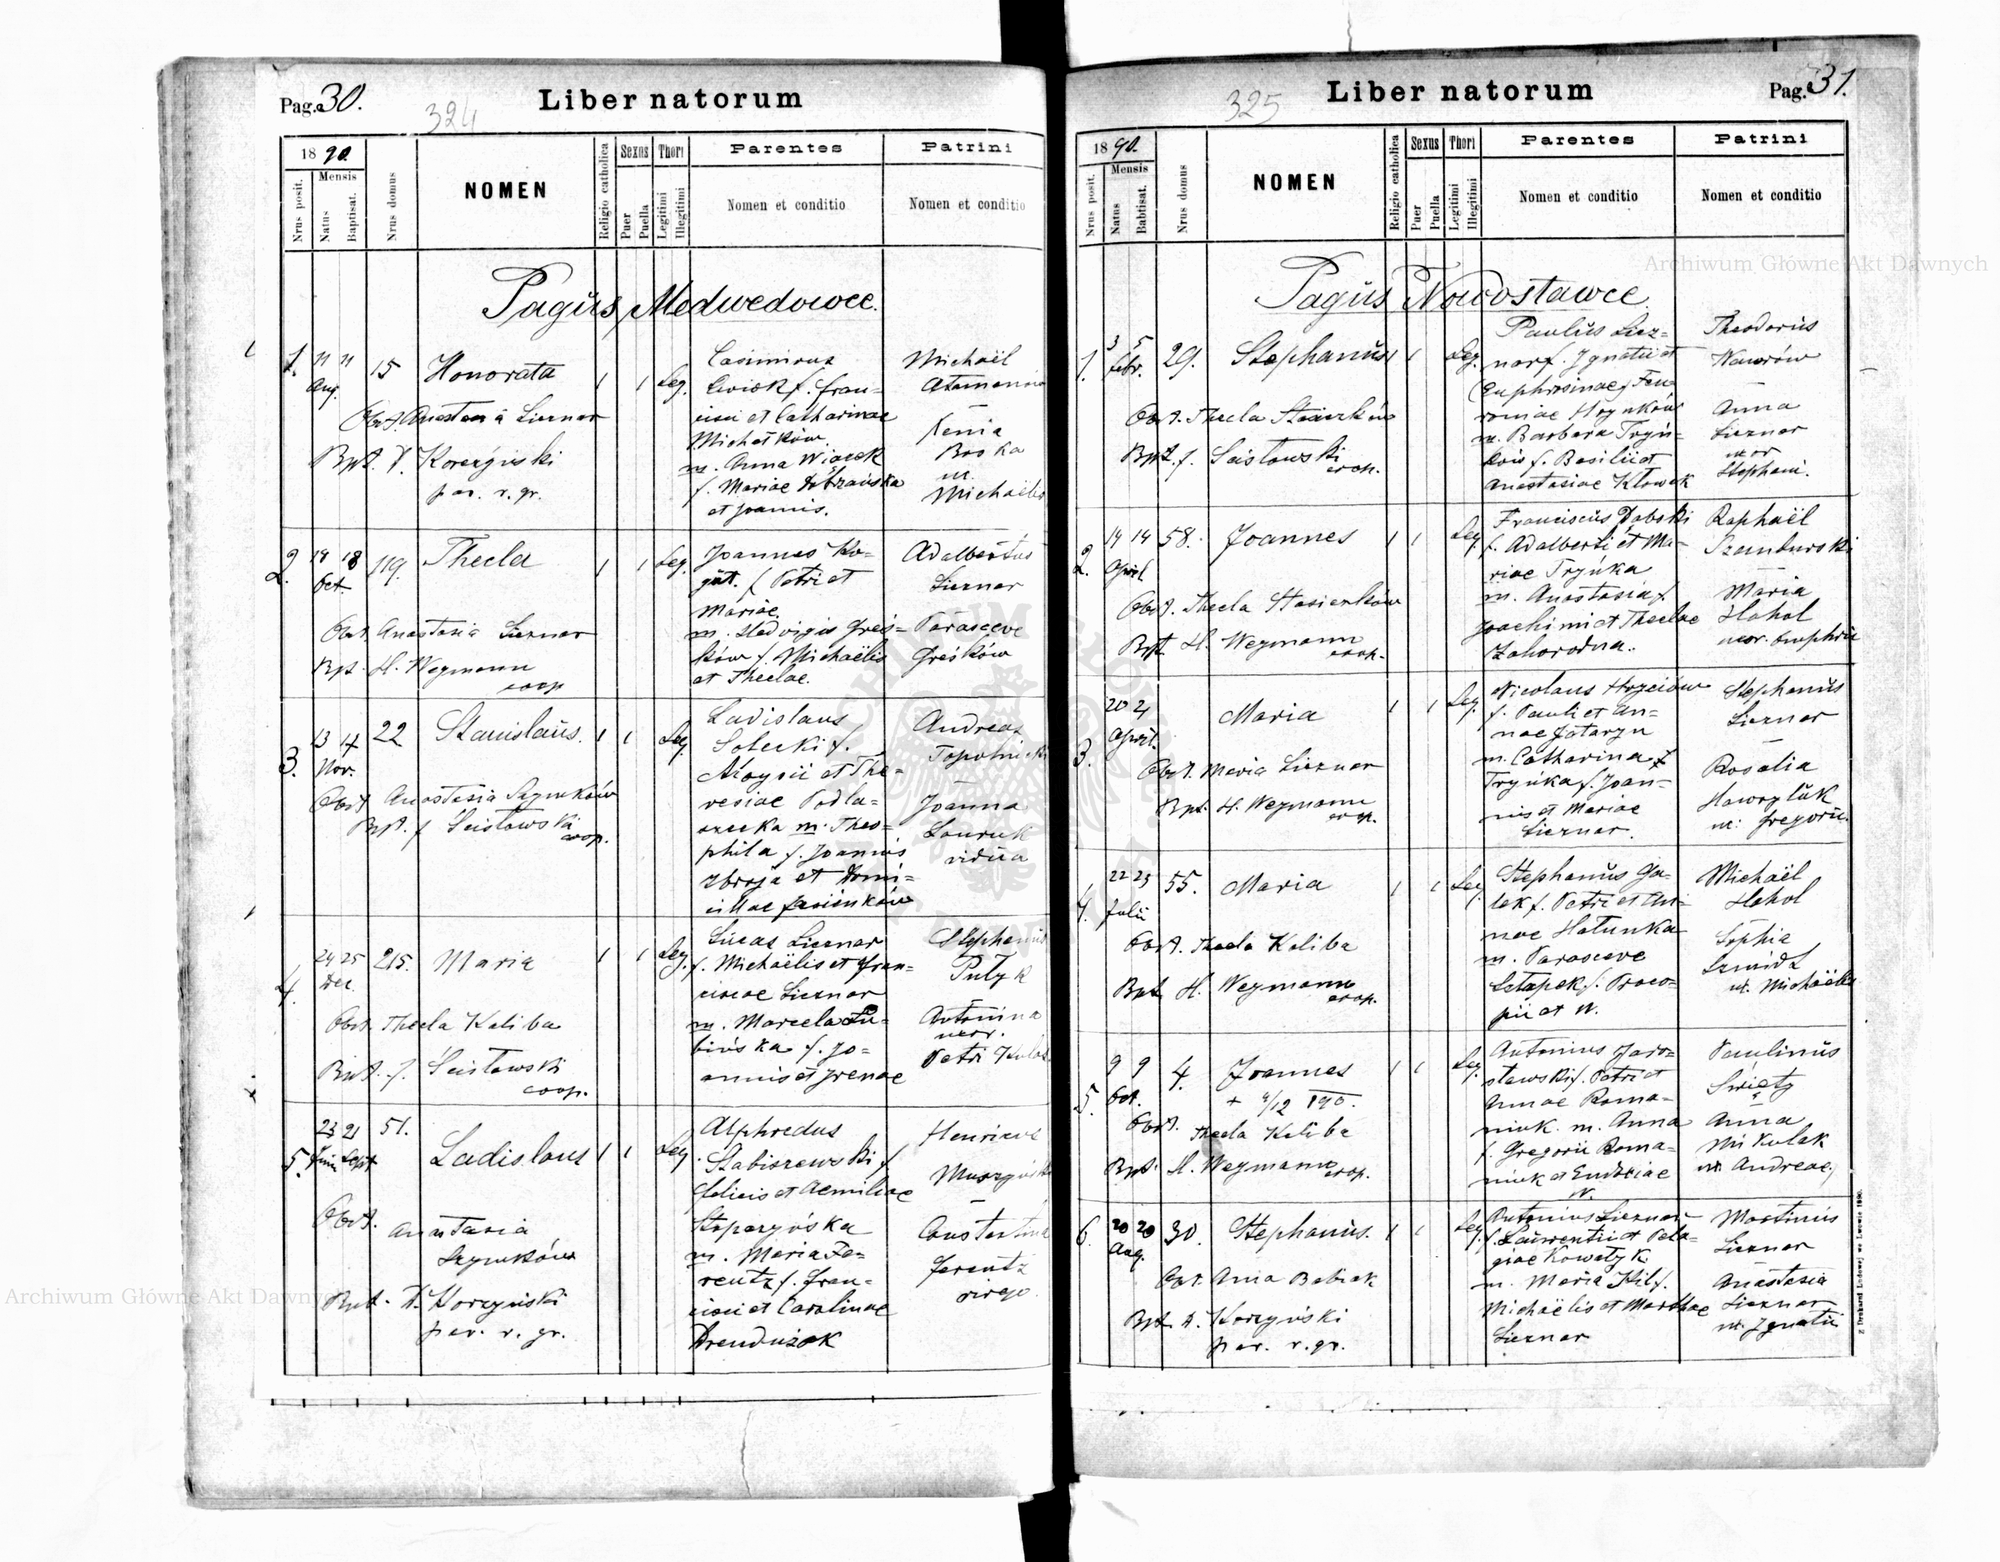 Pag. 30.
324
Liber natorum
18 90.
Nrus posit.
Mensis
Natus
Baptisat.
Nrus domus
NOMEN
Religio catholica
Sexus
Puer
Puella
Thori
Legitimi
Illegitimi
Parentes
Nomen et conditio
Patrini
Nomen et conditio
Pagus Medwedowce.
1.
11 11
Aug.
15
Honorata
1
1
Leg.
Obst. Anastasia Liexnar
Bpt. Korczyński
par. r. gr.
Casimirus
f. Fran-
cisci et Catharinae
m. Anna
f. Mariae
et Joannis.
Michaël
Xenia
ux.
Michaëlis
2.
14 18
Oct.
119.
Thecla
1
1
Leg.
Obst. Anastasia Liexnar
Bpt. H. Wegmann
coop
Joannes Ko-
gut. f. Petri et
Mariae.
m. Hedvigis Greś-
ków f. Michaëlis
et Theclae.
Adalbertus
Liexnar
Parasceve
Greśków
3.
13 17
Nov.
22
Stanislaus.
1
1
Leg.
Obst. Anastasia Szynków
Bpt. J. Scisłowski
coop.
Ladislaus
Solecki f.
Aloysii et The-
resiae Podla-
szecka m. Theo-
phila f. Joannis
Zbroja et Domi-
cillae Jasieńków
Andreas
Topolnicki
Joanna
Lauruk
vidua
4.
24 25
Dec.
215.
Maria
1
1
Leg.
Obst. Thecla Kaliba
Bpt. J. Scisłowski
coop.
Lucas Liexnar
f. Michaëlis et Fran-
ciscae Liexnar
m. Marcela Lu-
bińska f. Jo-
annis et Irenae
Stephanus
Putyk
Antonina
uxor.
Petri
5.
23 21
Junii Sept
51.
Ladislaus
1
1
Leg
Obst.
Anastasia
Szynków
Bpt. Korczyński
par. r. gr.
Alphredus
Stabiszewski f.
Felicis et Aemiliae
m. Maria Fe-
rentz f. Fran-
cisci et Carolinae
Henricus
Ferentz
virgo.
Pag. 31.
325
Liber natorum
18 90.
Nrus posit.
Mensis
Natus
Babtisat.
Nrus domus
NOMEN
Religio catholica
Sexus
Puer
Puella
Thori
Legitimi
Illegitimi
Parentes
Nomen et conditio
Patrini
Nomen et conditio
Pagus Nowostawce.
1.
3 5
Febr.
29.
Stephanus
1
1
Leg.
Obst. Thecla
Bpt. J. Scisłowski
coop.
Paulus Liex-
nar f. Ignatii et
Euphrosinae f. Fen-
roniae Hrynków
m. Barbara Tryń-
f. Basilii et
Anastasiae Kłowak
Theodorus
Nawrów
Anna
Liexnar
uxor
Stephani.
2.
14 14
April
58.
Joannes
1
1
Leg
Obst. Thecla Stasieńków
Bpt H. Wegmann
coop.
Franciscus Dobski
f. Adalberti et Ma-
riae Tryńka
m. Anastasia f.
Joachimi et Theclae
Zahorodna.
Raphaël
Maria
Hohol
uxor.
3.
20 21
April.
Maria
1
1
Leg.
Obst. Maria Liexnar
Bpt. H. Wegmann
coop.
Nicolaus Hryciów
f. Pauli et An-
nae
m. Catharina
Tryńka f. Joan-
nis et Mariae
Liexnar.
Stephanus
Liexnar
Rosalia
Hawryluk
ux. Gregorii.
4.
22 23
Julii
55.
Maria
1
1
Leg.
Obst. Thecla Kaliba
Bpt H. Wegmann
coop.
Stephanus Ga-
lak f. Petri et An-
nae Hałunka
m. Parasceve
f. Proco-
pii et N.
Michaël
Hohol
Sophia
Szmidt
ux. Michaëlis
5.
9 9
Oct.
4.
Joannes
+ 4/12 890.
1
1
Leg
Obst. Thecla Kaliba
Bpt. H. Wegmann
coop.
Antonius Jaro-
sławski f. Petri et
Annae Roma-
niuk. m. Anna
f. Gregorii Roma-
niuk et Eudoxiae
N.
Paulinus
Święty
Anna
Mikulak
ux. Andreae
6.
20 20
Aug.
30.
Stephanus.
1
1
Leg.
Obst. Anna Babiak
Bpt. Korczyński
par. r. gr.
Antonius Liexnar
f. Laurentii et Pela-
giae Kowalyk
m. Maria Hil f.
Michaëlis et Marthae
Liexnar
Martinus
Liexnar
Anastasia
Liexnar
ux. Ignatii
Z Drukarni Ludowej we Lwowie 1890.
Archiwum Główne Akt Dawnych
Archiwum Główne Akt Dawnych